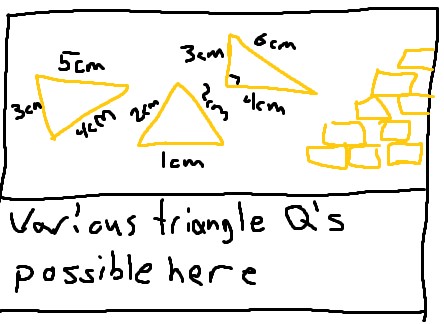 5cm
3cm
4cm
2cm
2cm
1cm
3cm
6cm
4cm
Various triangle Q's
possible here